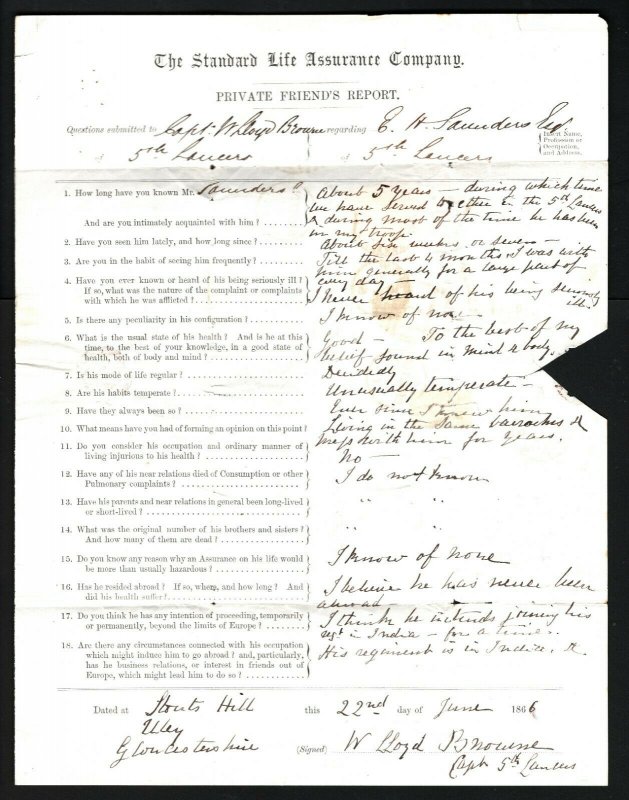 The Standard Life Assurance Company.
PRIVATE FRIEND'S REPORT.
Questions submitted to Capt. W Lloyd Browne regarding E. H. Saunders Esq
Insert Name, Profession or Occupation, and Address.
of 5th Lancers of 5th Lancers
1. How long have you known Mr. Saunders?
About 5 years — during which time
we have served together in the 5th Lancers
And are you intimately acquainted with him?
& during most of the time he has been
in my troop
2. Have you seen him lately, and how long since?
About six weeks or seven —
3. Are you in the habit of seeing him frequently?
Till the last 4 months I was with
him generally for a large part of
every day
4. Have you ever known or heard of his being seriously ill?
If so, what was the nature of the complaint or complaints
with which he was afflicted?
I never heard of his being seriously
ill.
5. Is there any peculiarity in his configuration?
I know of none
6. What is the usual state of his health? And is he at this
time, to the best of your knowledge, in a good state of
health, both of body and mind?
Good — To the best of my
belief sound in mind & body.
7. Is his mode of life regular?
Decidedly
8. Are his habits temperate?
Unusually temperate —
9. Have they always been so?
Ever since I knew him
10. What means have you had of forming an opinion on this point?
Living in the same barracks &
mess with him for years.
11. Do you consider his occupation and ordinary manner of
living injurious to his health?
No —
12. Have any of his near relations died of Consumption or other
Pulmonary complaints?
I do not know
13. Have his parents and near relations in general been long-lived
or short-lived?
" "
14. What was the original number of his brothers and sisters?
And how many of them are dead?
" "
15. Do you know any reason why an Assurance on his life would
be more than usually hazardous?
I know of none
16. Has he resided abroad? If so, where, and how long? And
did his health suffer?
I believe he has never been
abroad
17. Do you think he has any intention of proceeding, temporarily
or permanently, beyond the limits of Europe?
I think he intends joining his
regt in India — for a time.
18. Are there any circumstances connected with his occupation
which might induce him to go abroad? and, particularly,
has he business relations, or interest in friends out of
Europe, which might lead him to do so?
His regiment is in India. &
Dated at Stouts Hill this 22nd day of June 1866
Uley
Gloucestershire
(Signed) W Lloyd Browne
Capt 5th Lancers